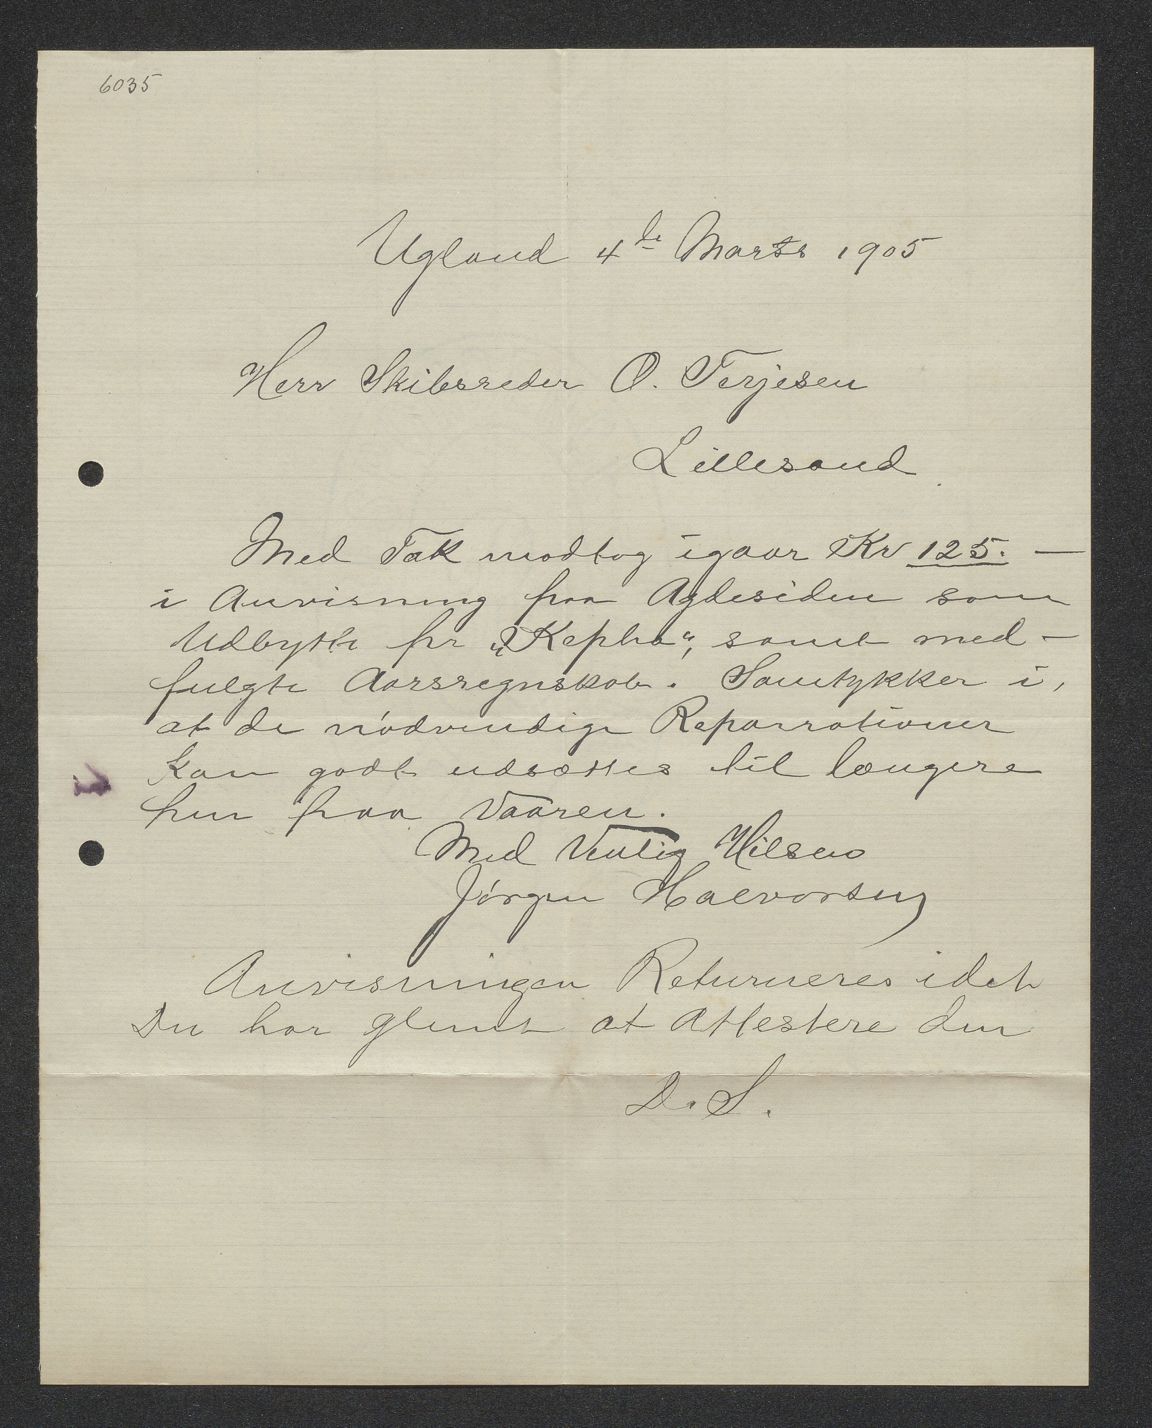 6035
Ugland 4de Marts 1905
Herr Skibsreder O. Terjesen
Lillesand
Med Tak modtog igaar Kr 125. —
i Anvisning paa Agdesiden som
Udbytte for „Kepha“, samt med-
fulgte Aarsregnskab. Samtykker i,
at de nödvendige Reparrationer
kan godt udsættes til længere
hen paa Vaaren.
Med Venlig Hilsen
Jörgen Halvorsen
Anvisningen Returneres idet
Du har glemt at Attestere den
D. S.